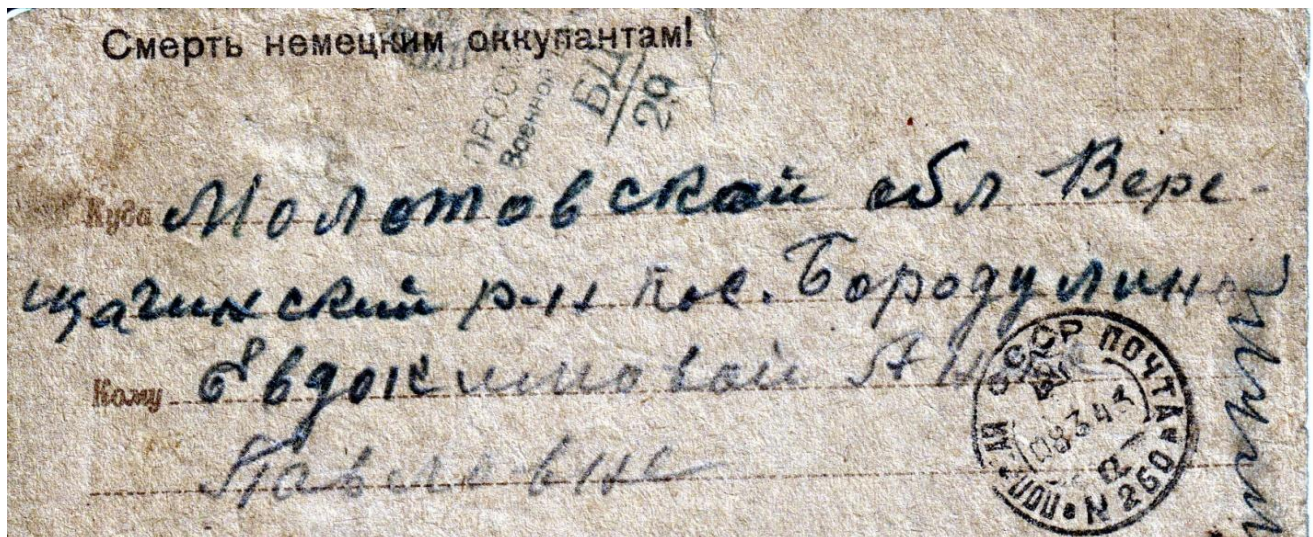 Смерть немецким оккупантам!
Военной
БД
29
Куда Молотовской обл Вере-
щагинский р-н пос. Бородулино
Кому Евдокимовой Анне
Павловне
СССР ПОЧТА
08 3 43
№ 260